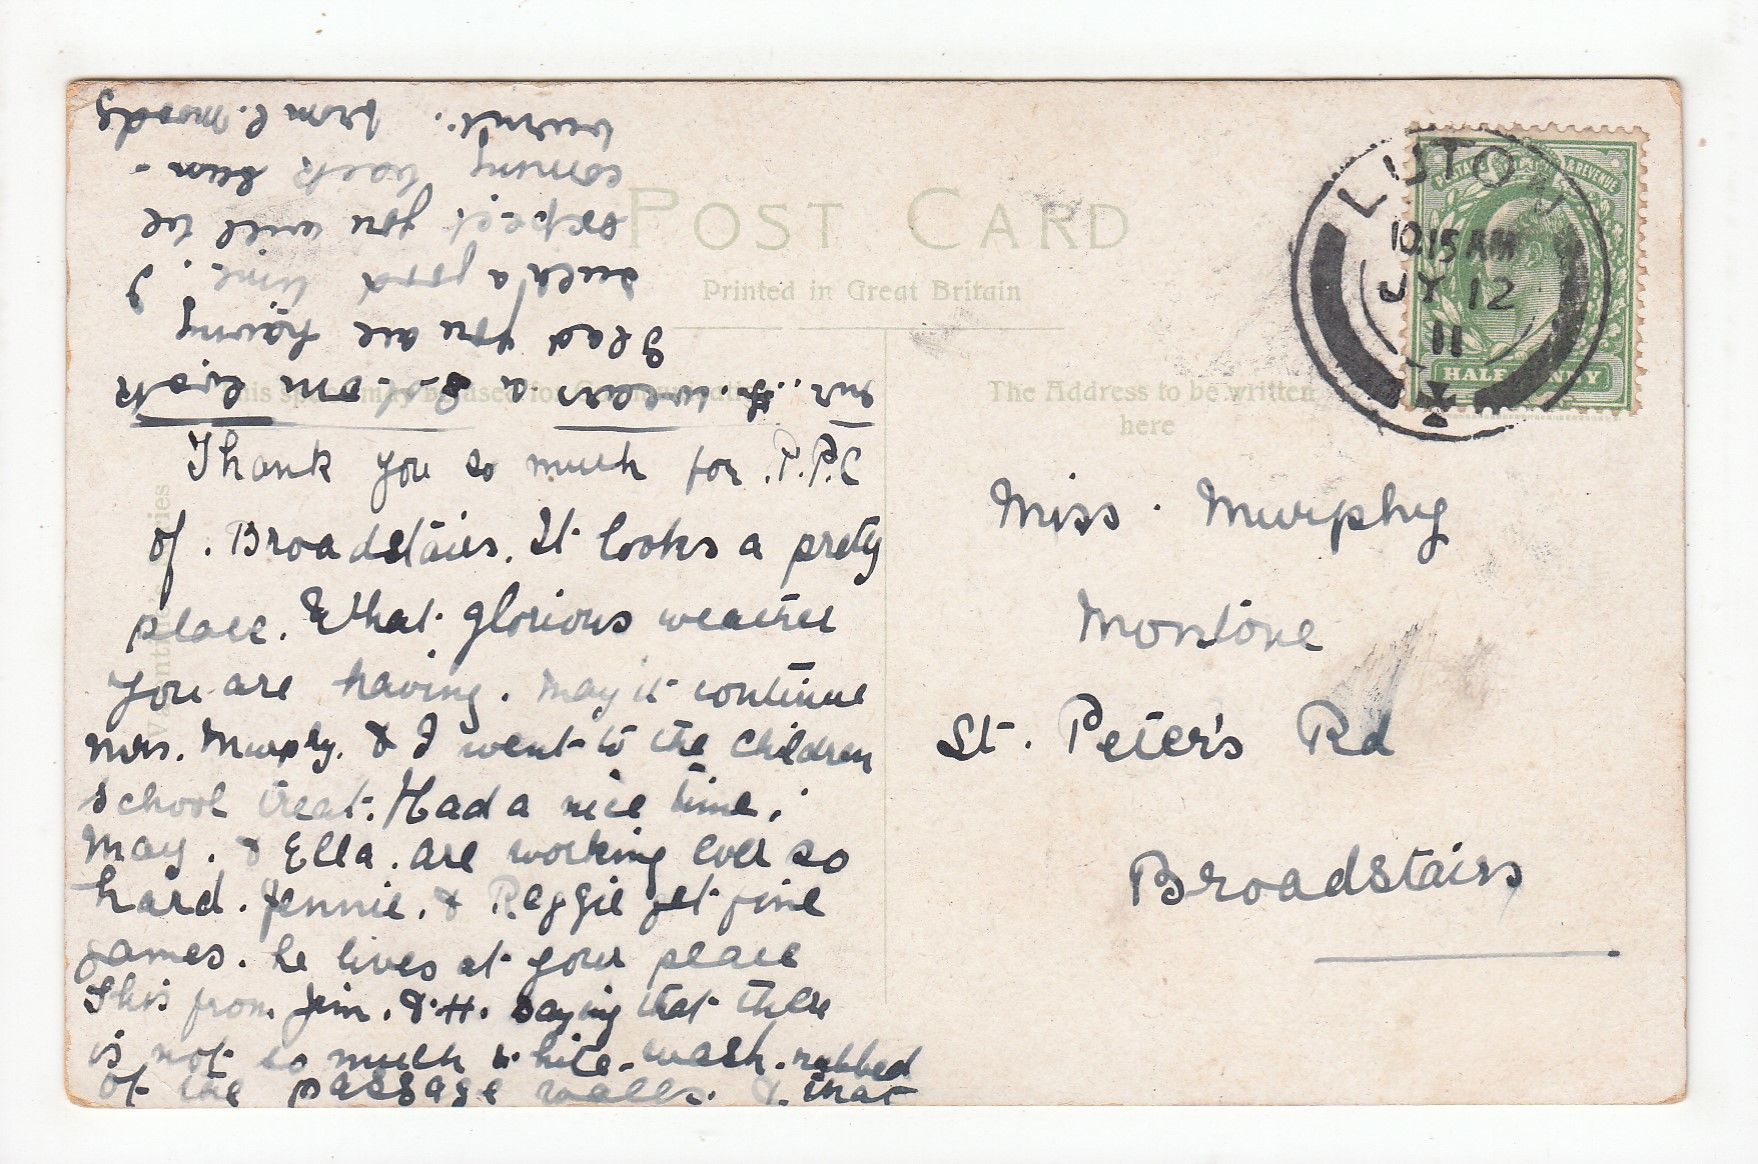 POST CARD
Printed in Great Britain
This space may be used for Communication
The Address to be written
here
Valentines Series
LUTON
10.15 AM
JY 12
11
POSTAGE & REVENUE
HALF PENNY
Thank you so much for P.P.C
of. Broadstairs. It looks a prety
place. What glorious weather
you are having. May it continue
Mrs. Murphy. & I went to the children
school treat. Had a nice time.
May. & Ella. are working ever so
hard. Jennie. & Reggie get fine
games. he lives at your place
This from Jim. & H. saying that there
is not so much white-wash. rubbed
of the passage walls. & that
Mr. H. wears a
Glad you are having
such a good time. I
expect you will be
coming back sun-
burnt. from C. Moody
Miss. Murphy
Montone
St. Peter's Rd
Broadstairs